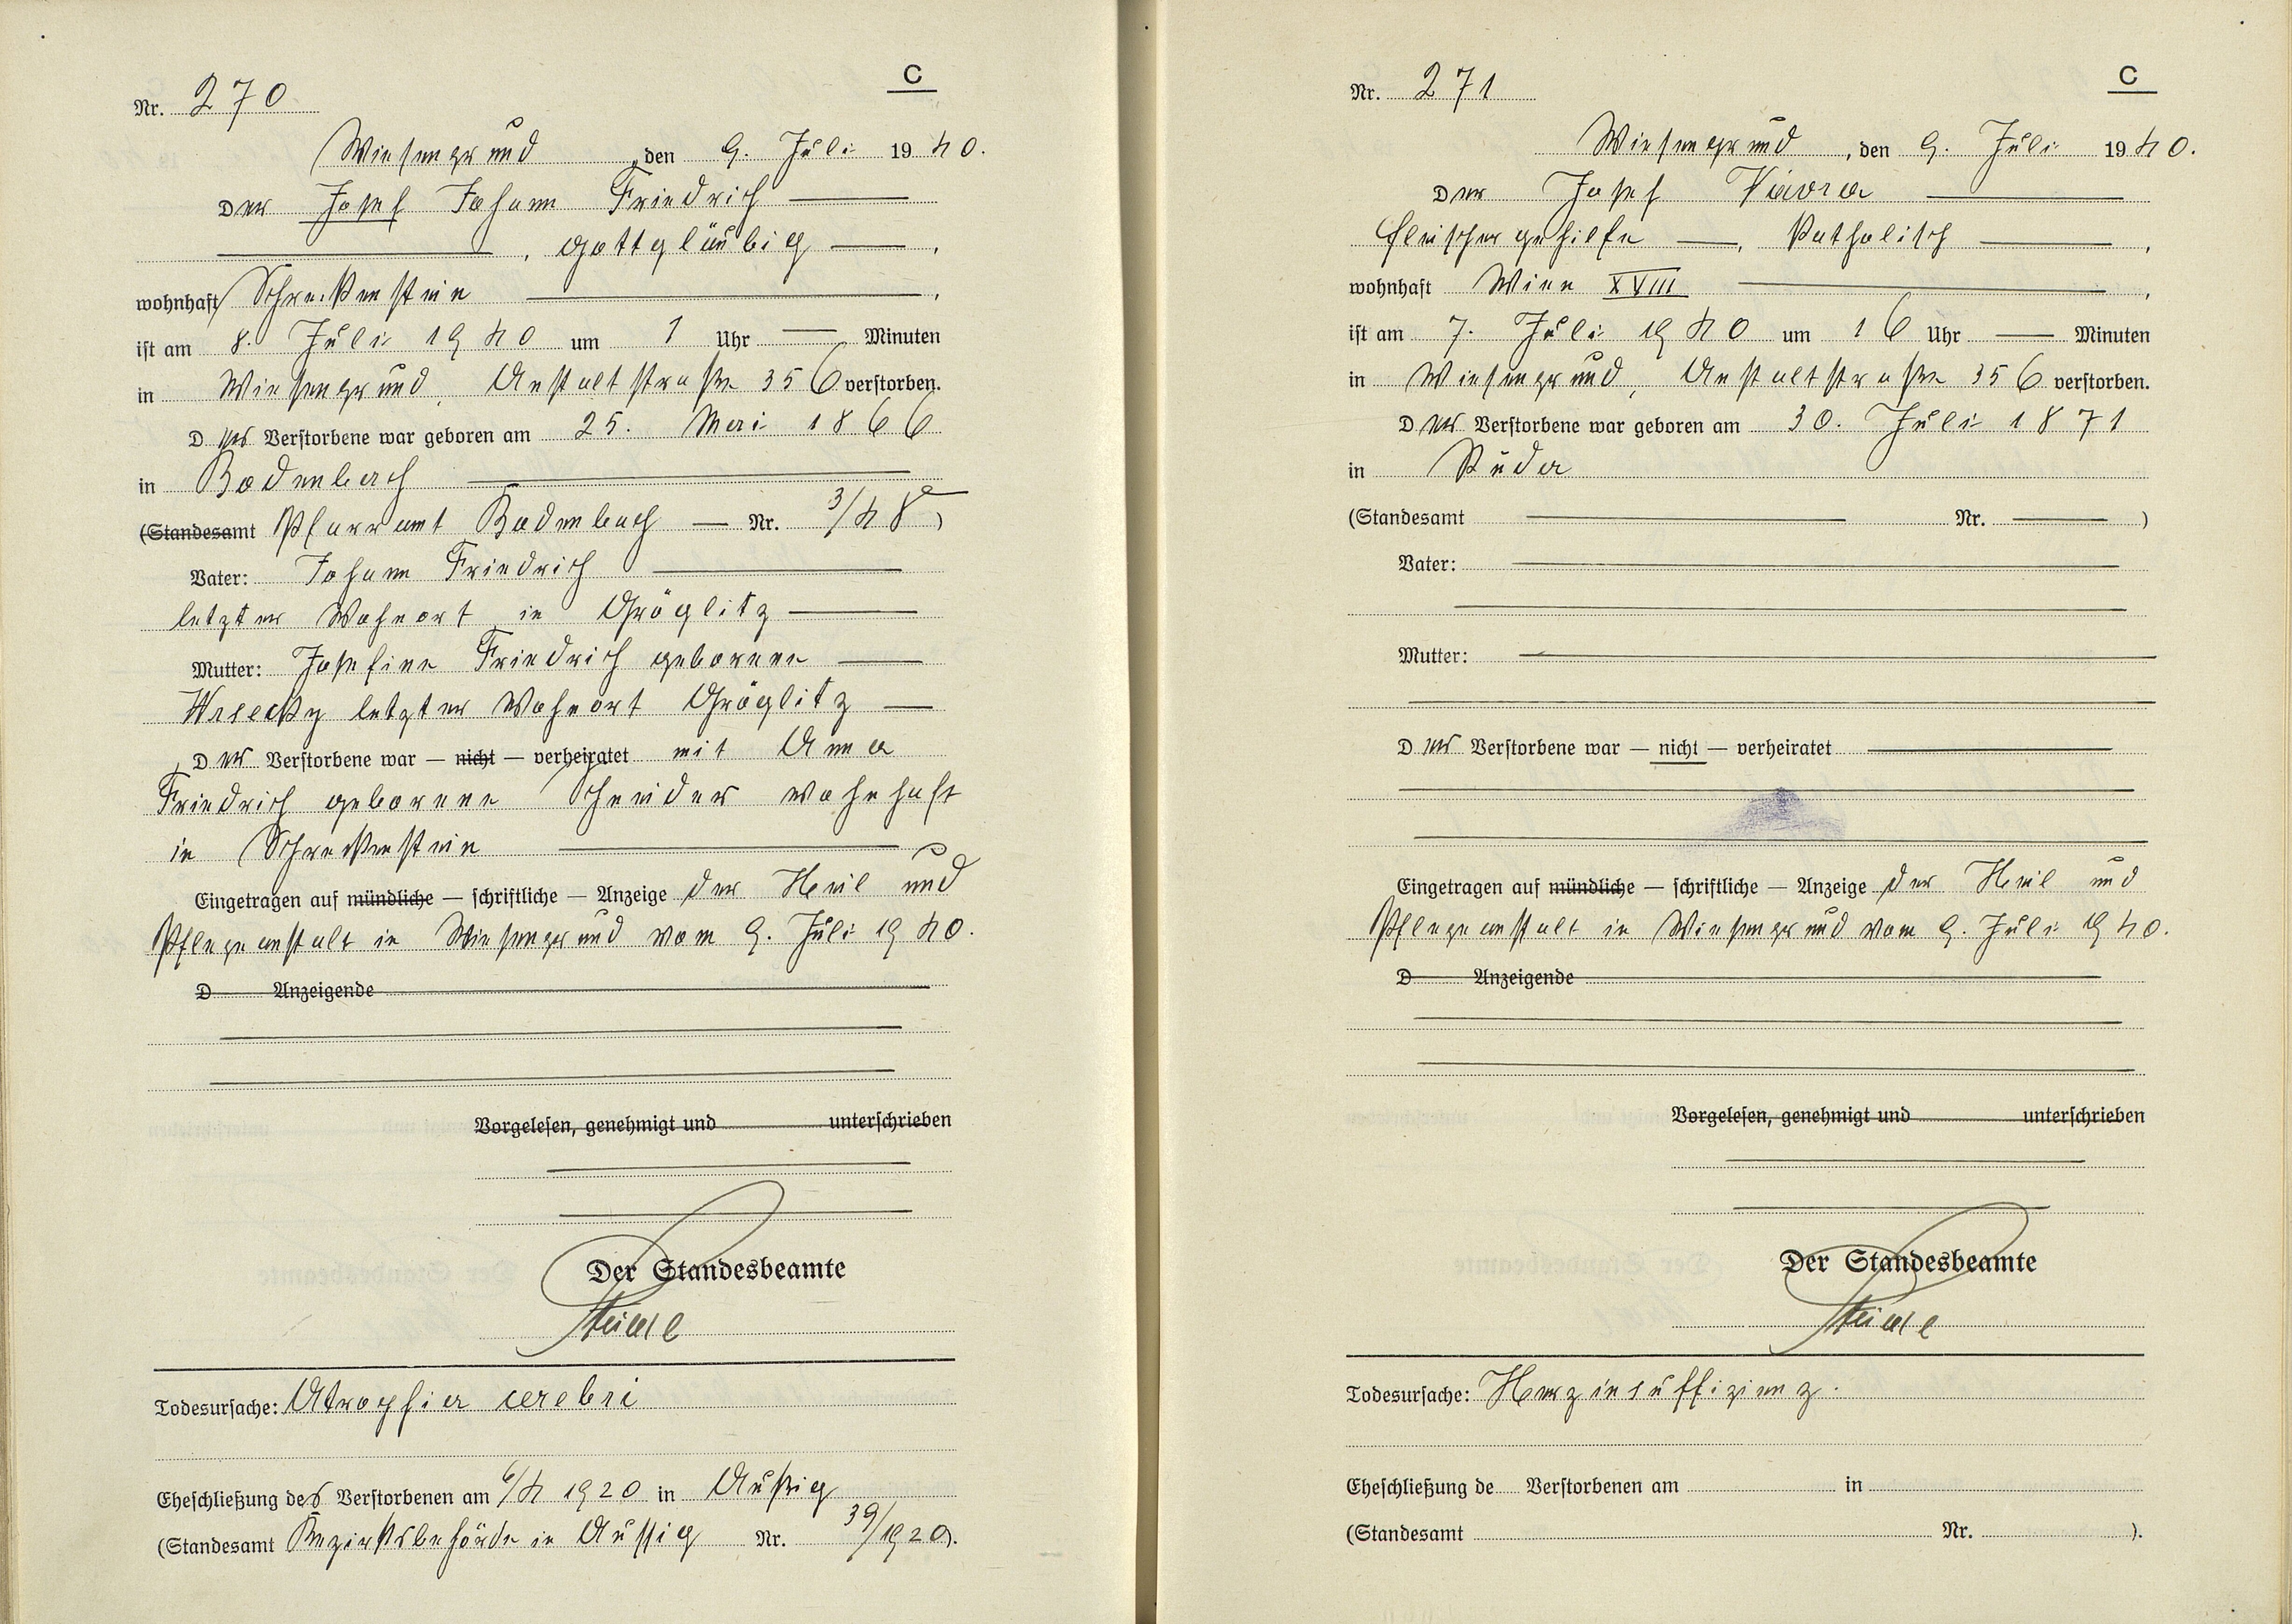 C
Nr. 270
Wiesengrund, den 9. Juli 1940.
Der Josef Johann Friedrich
, gottgläubig ,
wohnhaft Schreckenstein ,
ist am 8. Juli 1940 um 1 Uhr — Minuten
in Wiesengrund, Anstaltstraße 356 verstorben.
Der Verstorbene war geboren am 25. Mai 1866
in Bodenbach
(Standesamt Pfarramt Bodenbach — Nr. 3/48)
Vater: Johann Friedrich
letzter Wohnort in Gröglitz
Mutter: Josefine Friedrich geborene
letzter Wohnort Gröglitz
Der Verstorbene war — nicht — verheiratet mit Anna
Friedrich geborene Schneider wohnhaft
in Schreckenstein
Eingetragen auf mündliche — schriftliche — Anzeige der Heil und
Pflegeanstalt in Wiesengrund vom 9. Juli 1940.
D Anzeigende
Vorgelesen, genehmigt und unterschrieben
Der Standesbeamte
Todesursache: Atrophia cerebri
Eheschließung des Verstorbenen am 6/4 1920 in Außig
(Standesamt Bezirksbehörde in Aussig Nr. 39/1920).
C
Nr. 271
Wiesengrund, den 9. Juli 1940.
Der Josef Vávra
Fleischergehilfe —, Katholisch ,
wohnhaft Wien XVIII ,
ist am 7. Juli 1940 um 16 Uhr — Minuten
in Wiesengrund, Anstaltstraße 356 verstorben.
Der Verstorbene war geboren am 30. Juli 1871
in Ruda
(Standesamt — Nr. — )
Vater:
Mutter:
Der Verstorbene war — nicht — verheiratet
Eingetragen auf mündliche — schriftliche — Anzeige der Heil und
Pflegeanstalt in Wiesengrund vom 9. Juli 1940.
D Anzeigende
Vorgelesen, genehmigt und unterschrieben
Der Standesbeamte
Todesursache: Herzinsuffizienz.
Eheschließung de Verstorbenen am in
(Standesamt Nr. ).